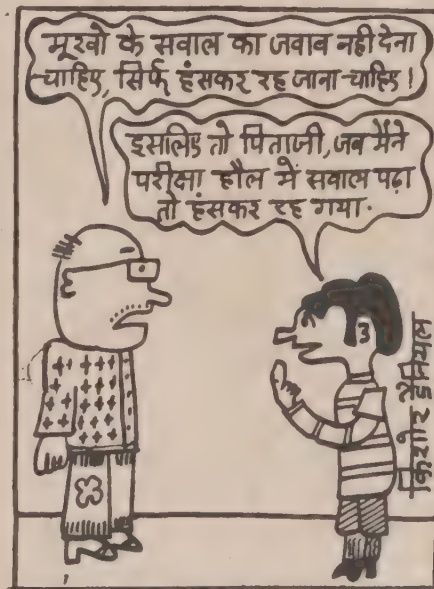 मूरखो के सवाल का जवाब नही देना
चाहिए, सिर्फ हंसकर रह जाना चाहिए !
इसलिए तो पिताजी, जब मैंने
परीक्षा हौल में सवाल पढ़ा
तो हंसकर रह गया.
किशोर डैनियल